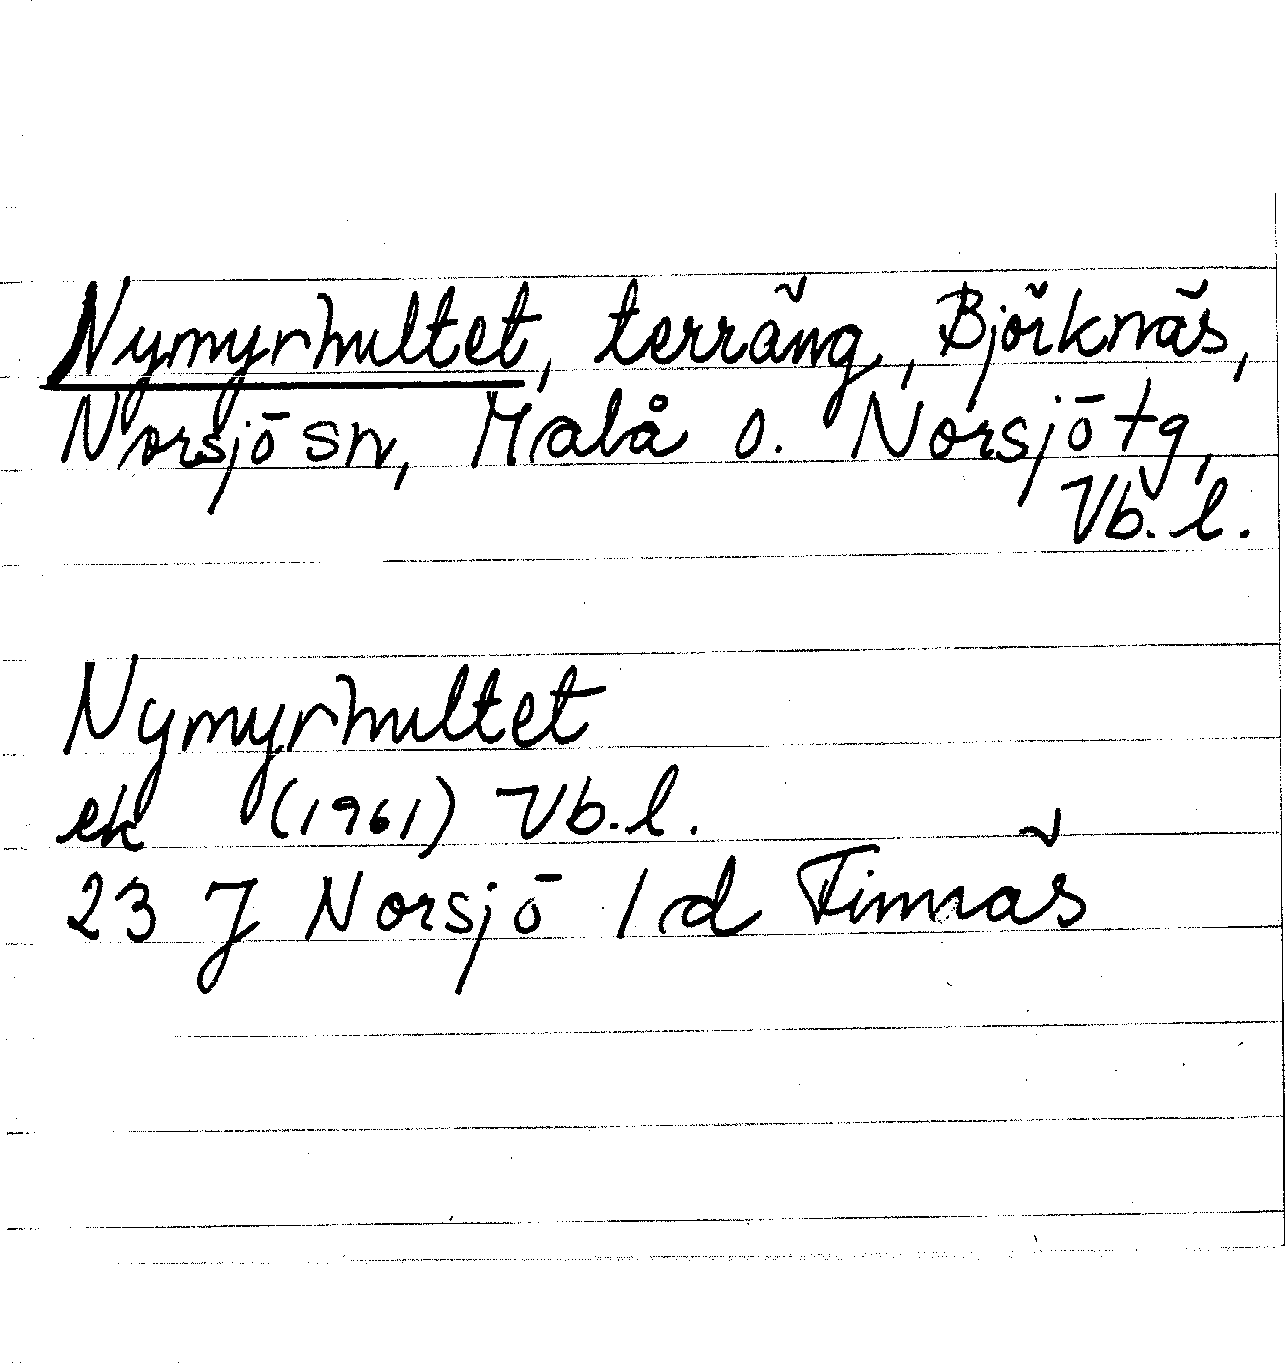 Nymyrhultet, terräng, Björknäs,
Norsjö sn, Malå o. Norsjö tg,
Vb. l.
Nymyrhultet
ek (1961) Vb. l.
23 J Norsjö 1 d Finnäs